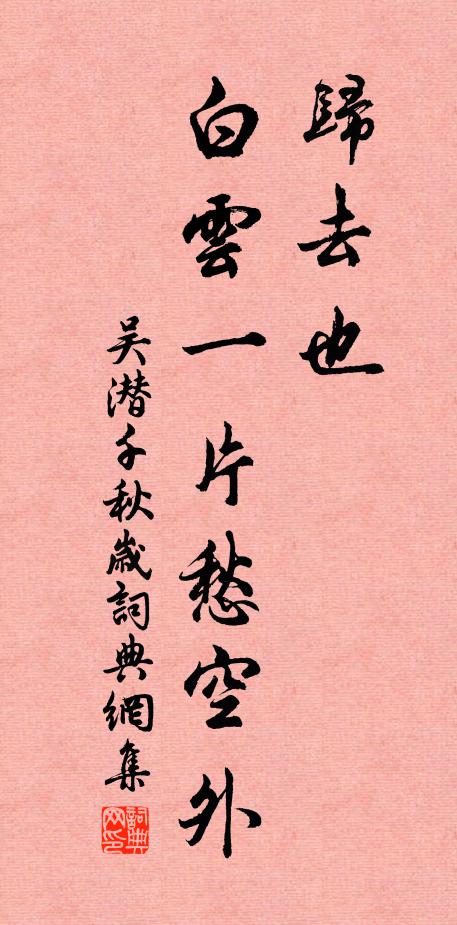 歸去也
白雲一片愁空外
吴潜千秋歲詞典網集
詞典网印